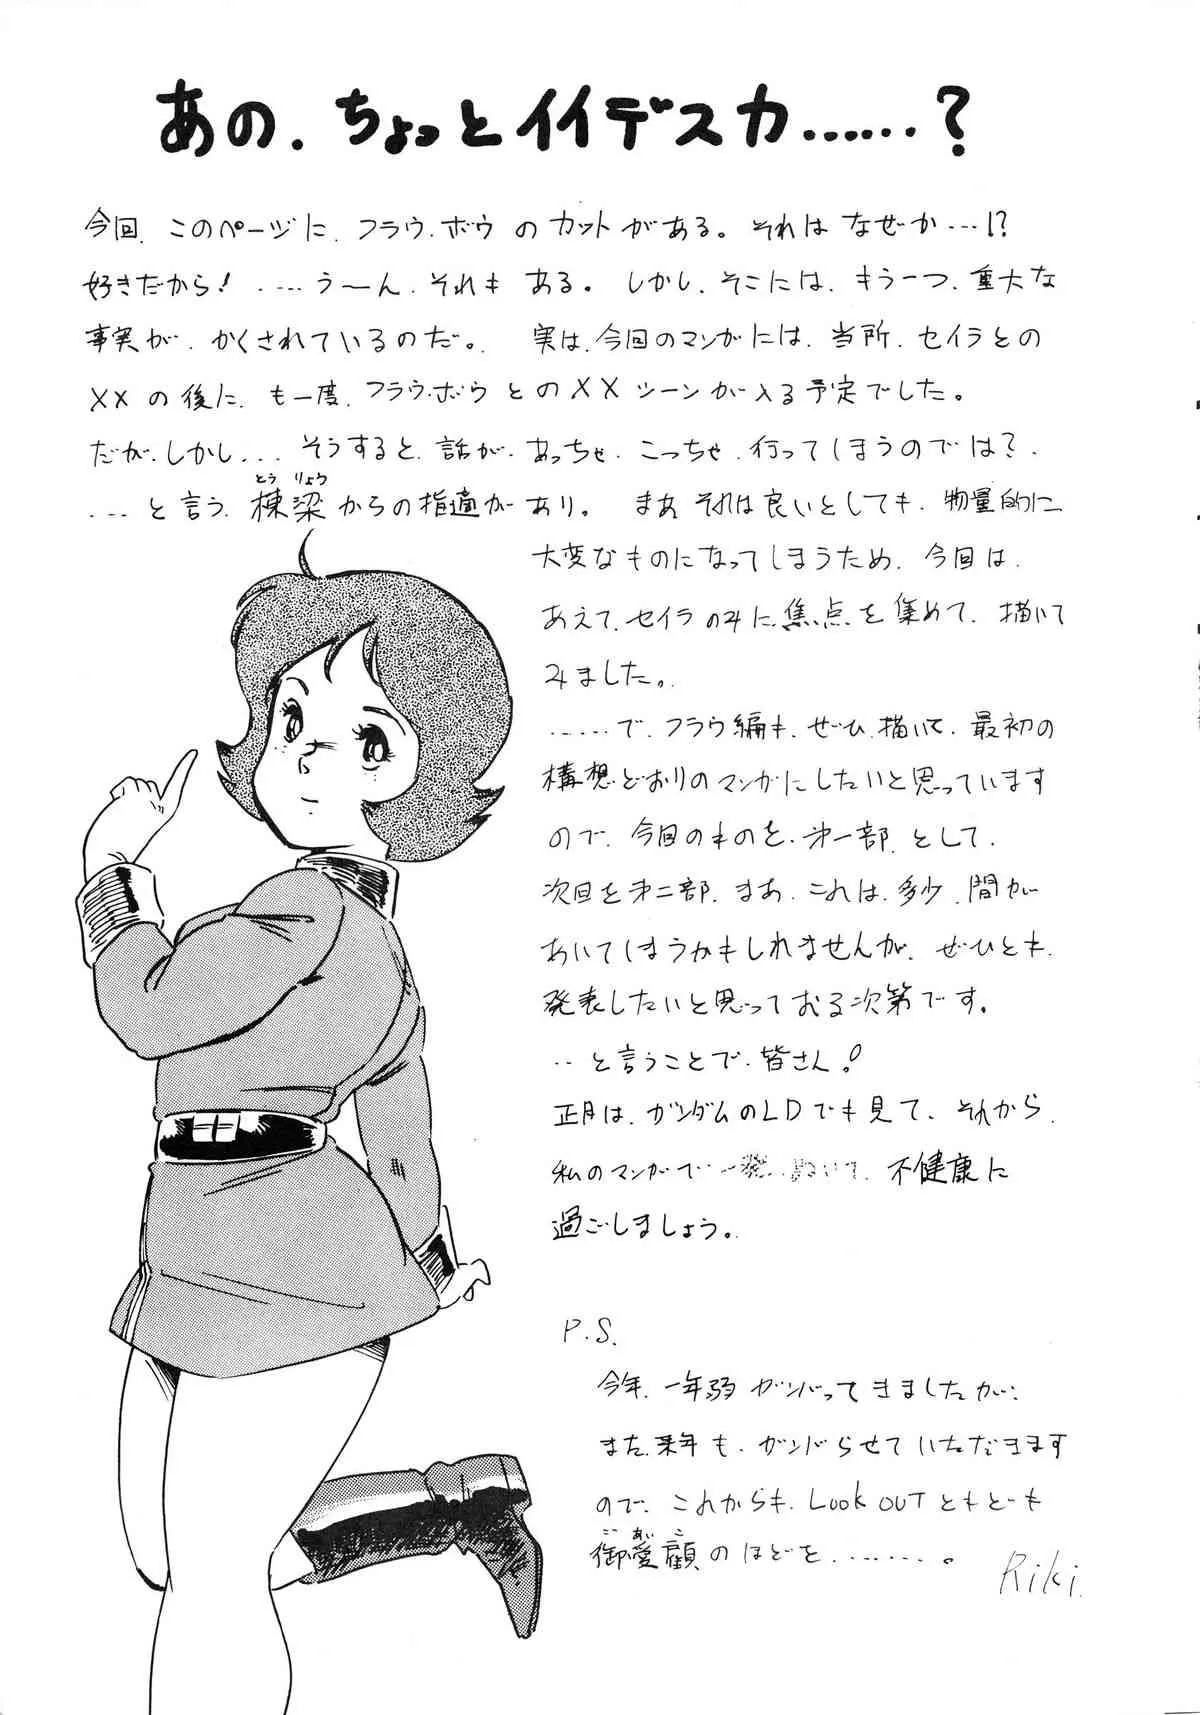 あの、ちょっとイイデスカ……?
今回、このページに、フラウ・ボウのカットがある。それはなぜか…!?
好きだから! ……う〜ん、それもある。しかし、そこには、もう一つ、重大な
事実が、かくされているのだ。実は、今回のマンガには、当所、セイラとの
××の後に、も一度、フラウ・ボウとの××シーンが入る予定でした。
だが、しかし… そうすると、話が、あっちゃ、こっちゃ、行ってしまうのでは?
…と言う、棟梁からの指適があり。まあそれは良いとしても、物量的に
とうりょう
大変なものになってしまうため、今回は、
あえて、セイラのみに焦点を集めて、描いて
みました。
……で、フラウ編も、ぜひ、描いて、最初の
構想どおりのマンガにしたいと思っています
ので、今回のものを、才一部、として、
次回を才二部、まあ、これは、多少、間が
あいてしまうかもしれませんが、ぜひとも、
発表したいと思っておる次第です。
‥と言うことで、皆さん!
正月は、ガンダムのLDでも見て、それから、
私のマンガで一発ぬいて、不健康に
過ごしましょう。
P.S.
今年、一年弱ガンバってきましたが、
また来年も、ガンバらせていただきます
ので、これからも、Look OUTともども
ごあいこ
御愛顧のほどを………。
Riki.